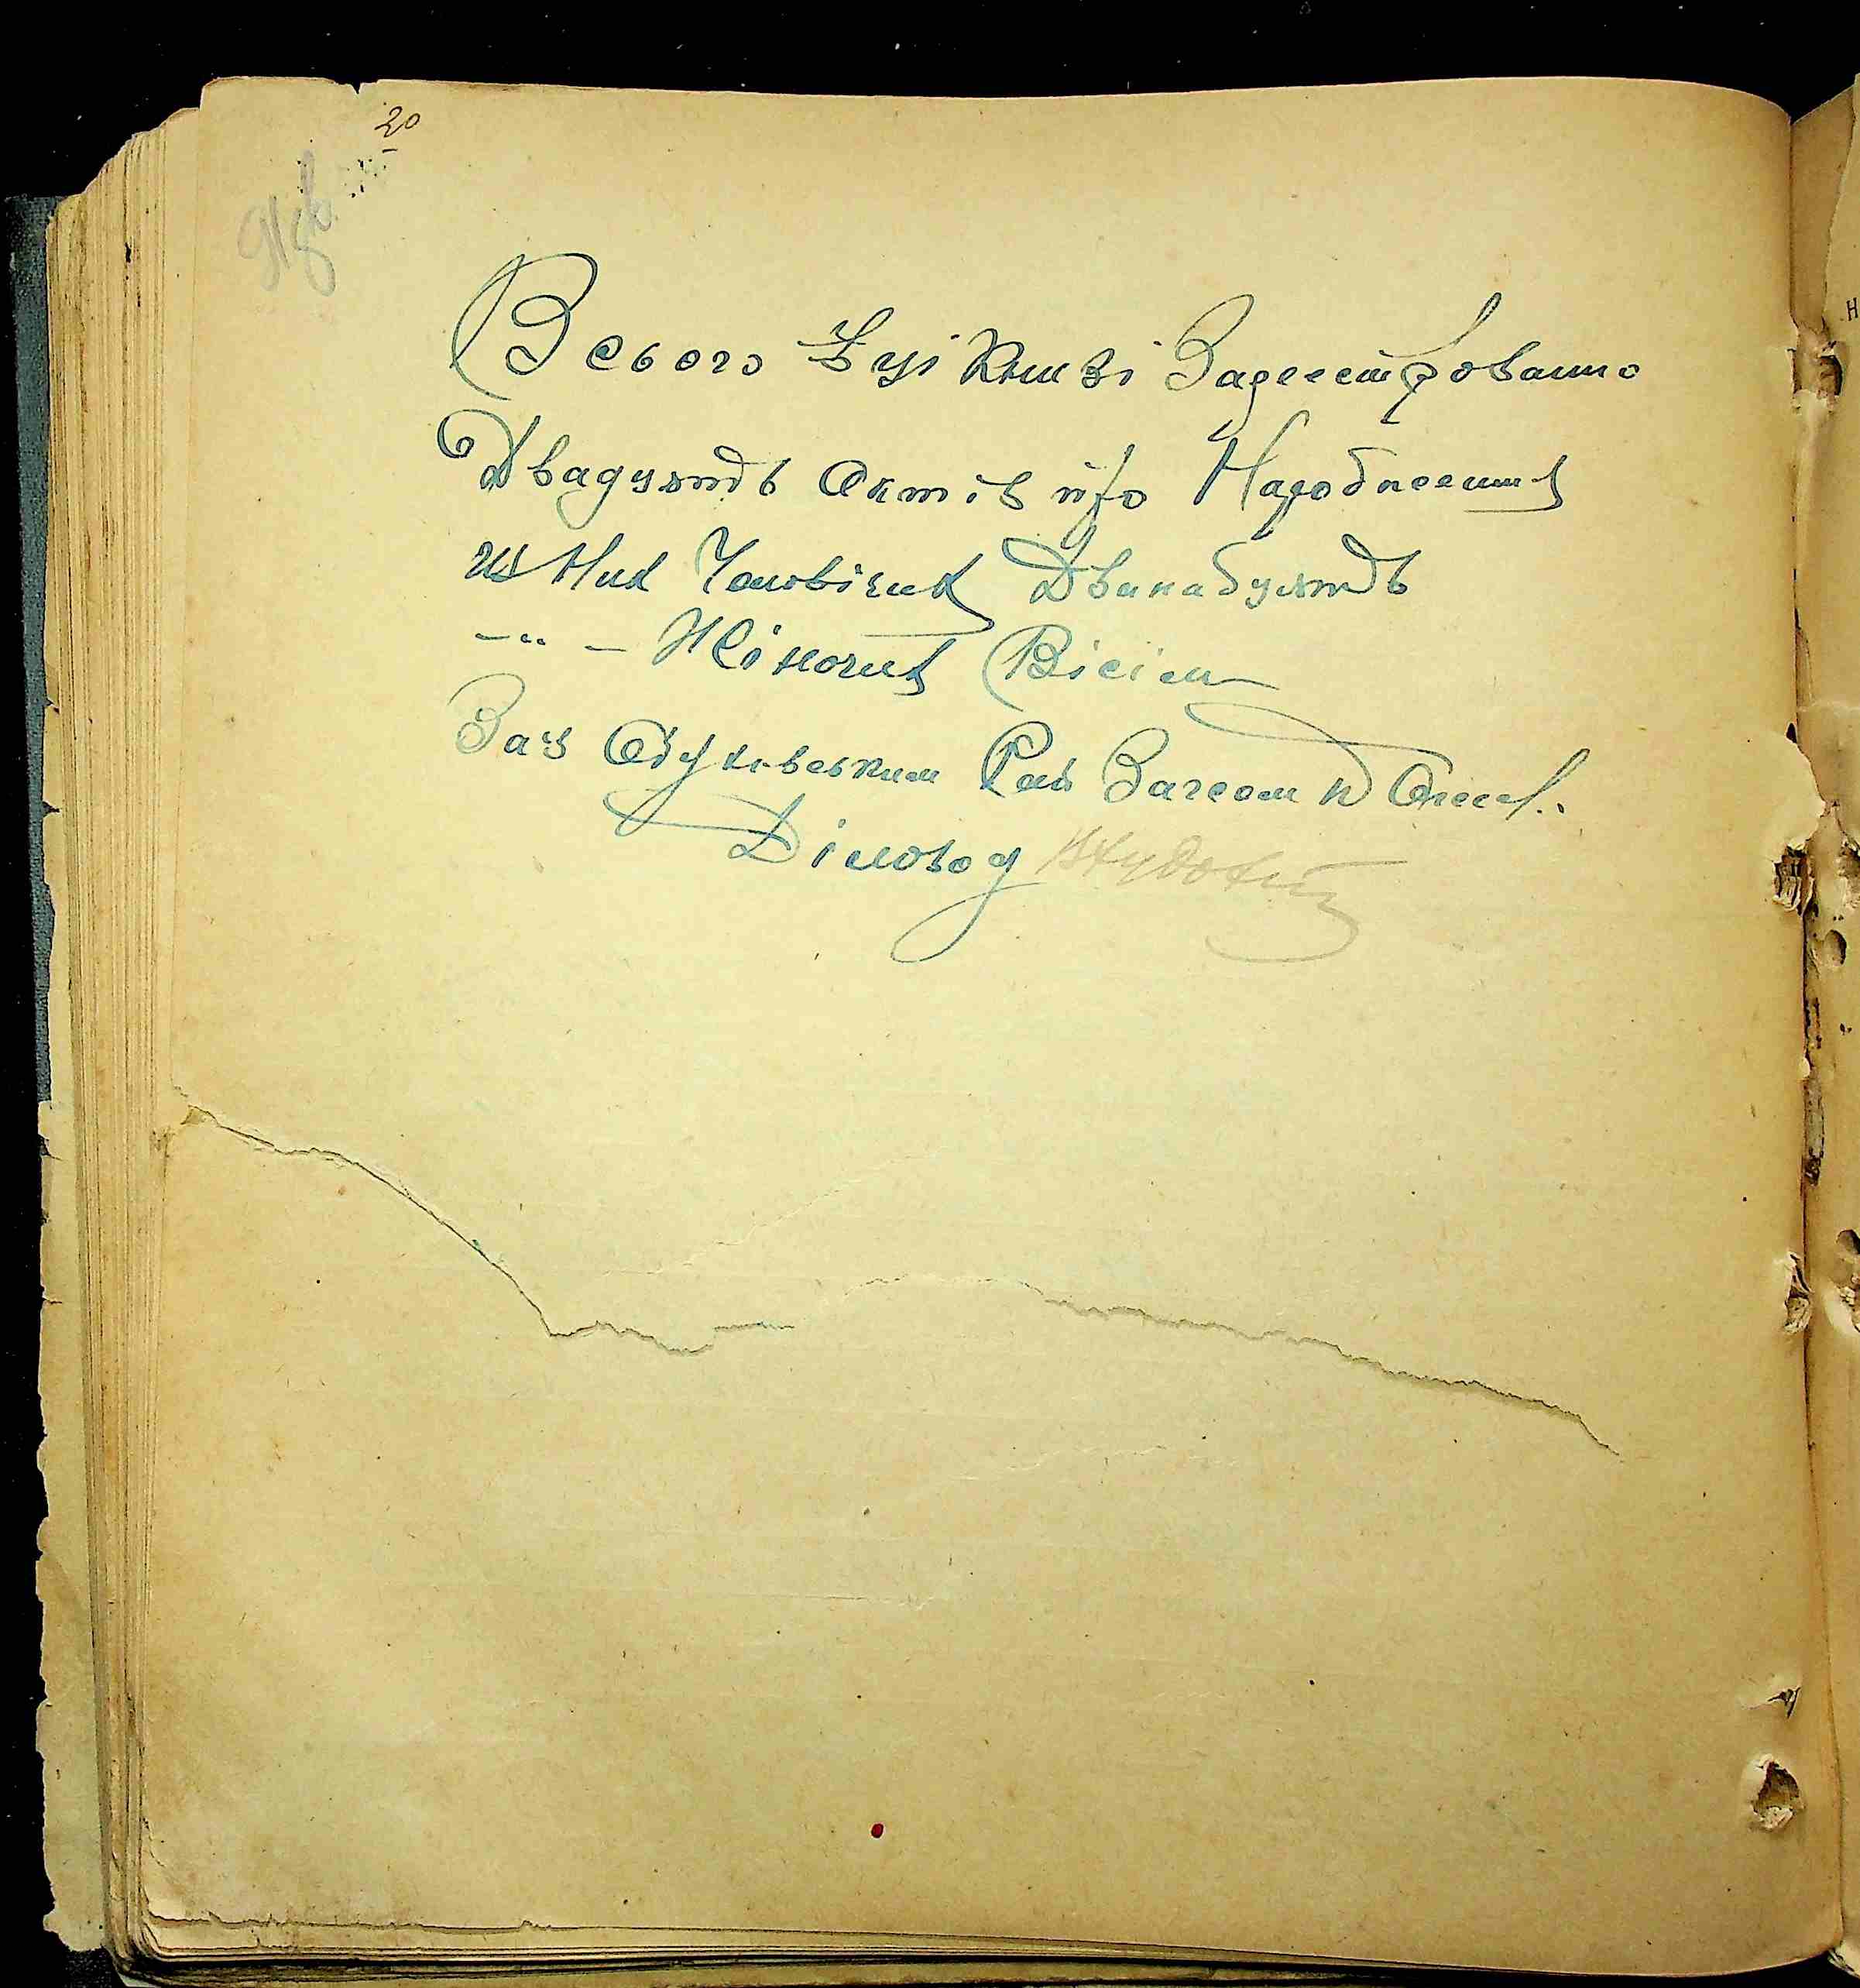 20
Всього в ції Книзі Зареестровано
Двадцять Актів про Народження
из них Чоловічих Дванадцять
-"- Жіночих Вісім
Зав Рай Загсом
Діловод